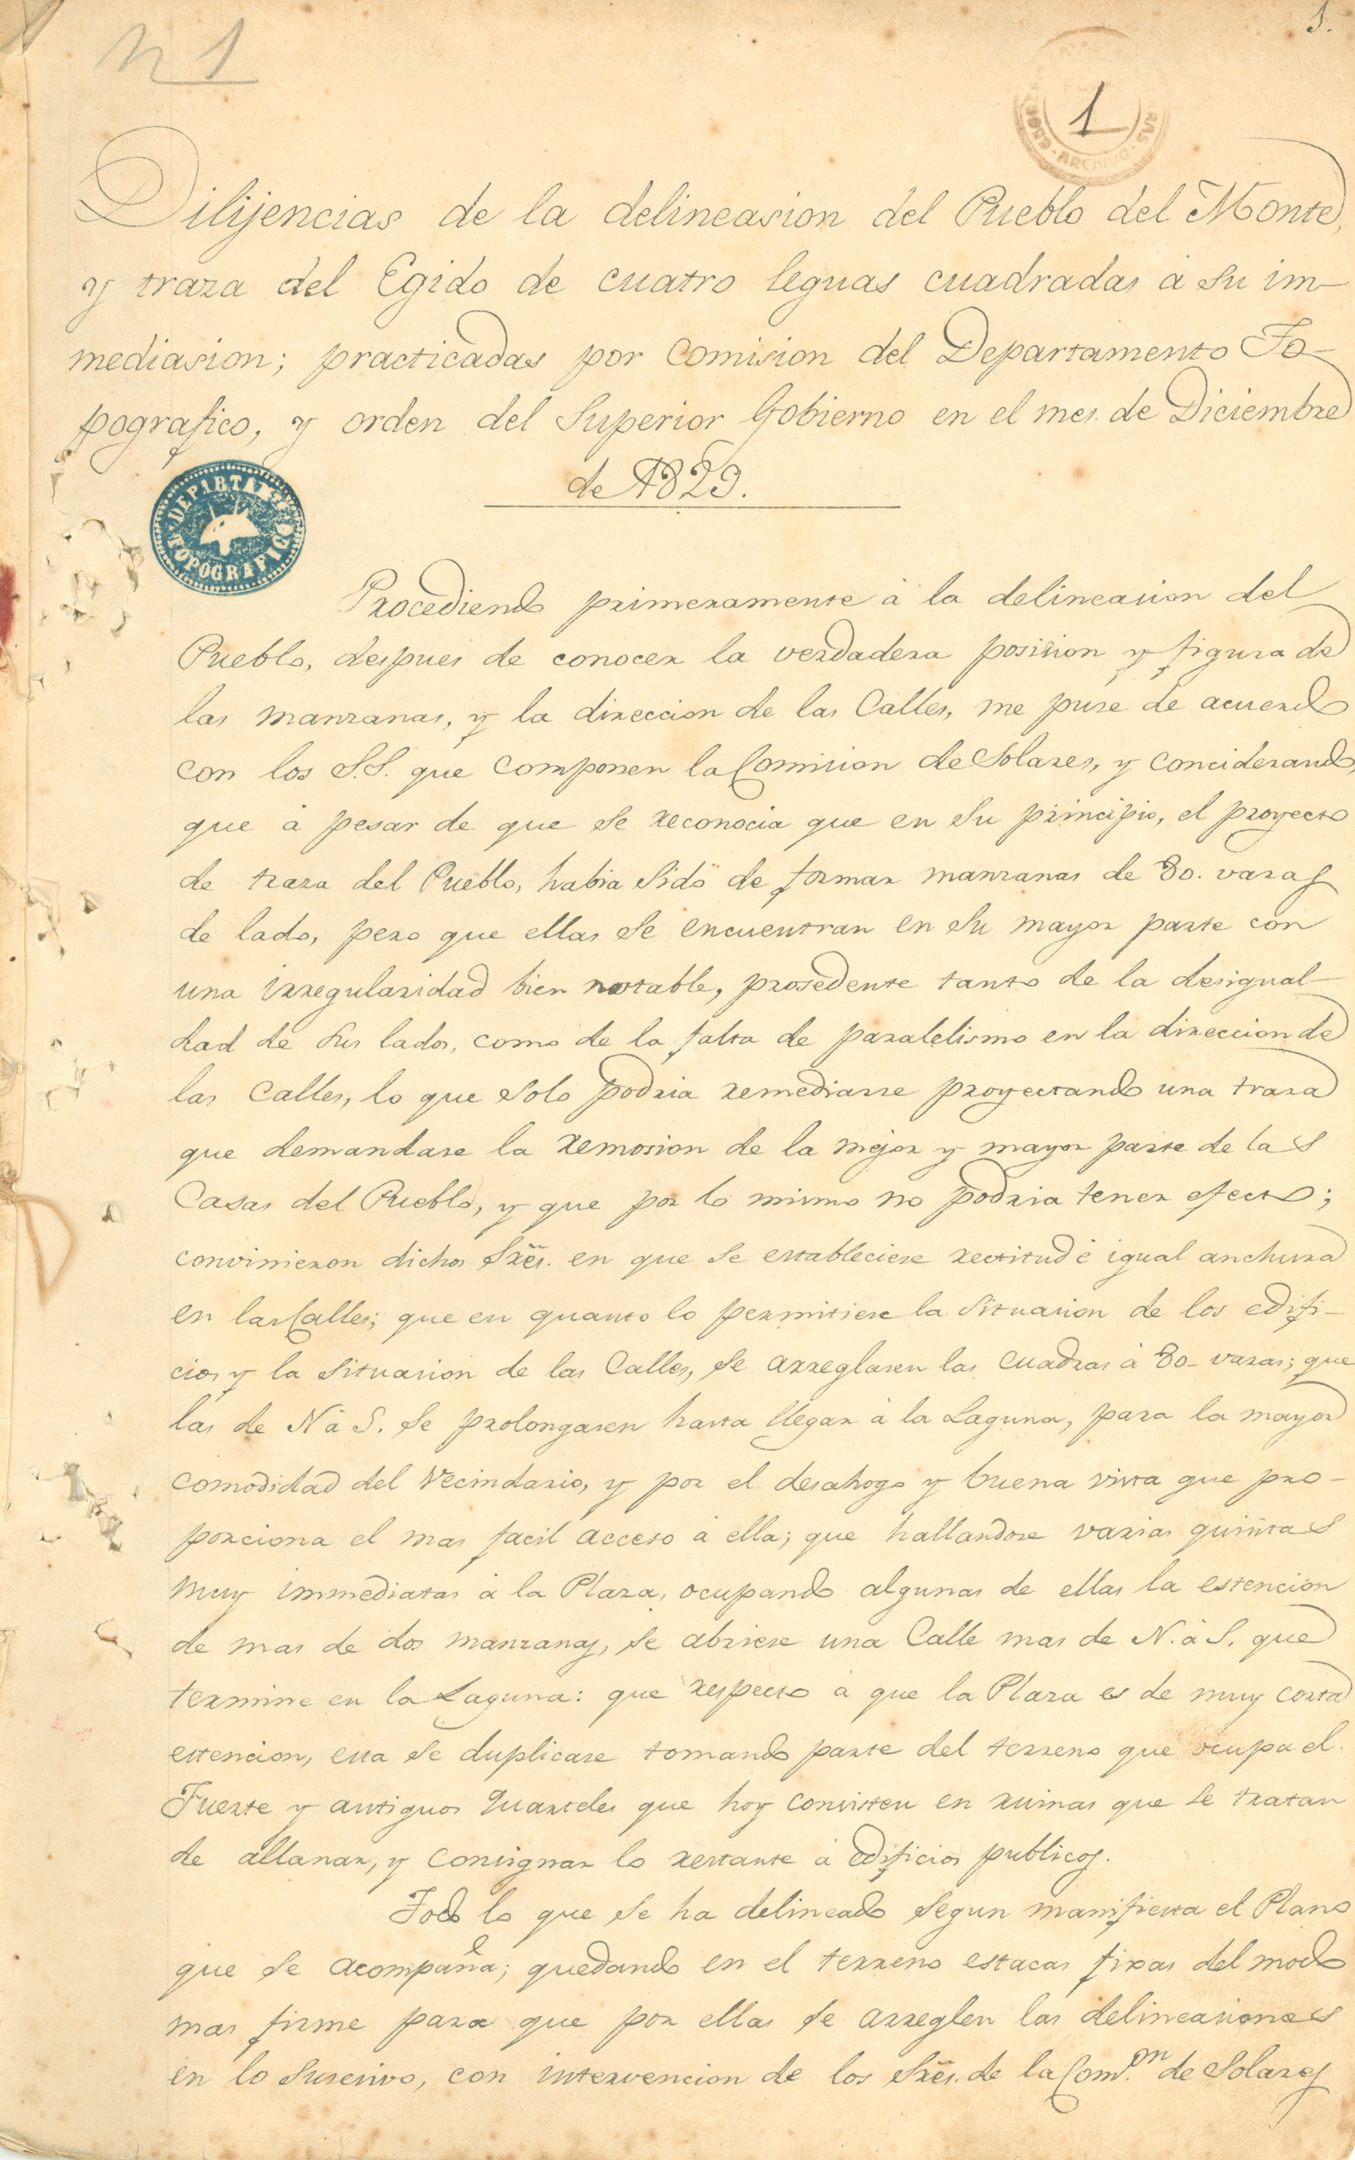 n 1
1.
1
ARCHIVO
Dilijencias de la delineasion del Pueblo del Monte,
y traza del Egido de cuatro leguas cuadradas á su im-
mediasion; practicadas por comision del Departamento To-
pografico, y orden del Superior Gobierno en el mes de Diciembre
de 1829.
DEPARTAMTO
TOPOGRAFICO
Procediendo primeramente á la delineasion del
Pueblo, despues de conocer la verdadera posision y figura de
las manzanas, y la direccion de las Calles, me puse de acuerdo
con los S.S. que componen la Comision de Solares, y conciderando,
que á pesar de que se reconocia que en su principio, el proyecto
de traza del Pueblo, habia sido de formar manzanas de 80. varas
de lado, pero que ellas se encuentran en su mayor parte con
una irregularidad bien notable, prosedente tanto de la desigual-
dad de sus lados, como de la falta de paralelismo en la direccion de
las Calles, lo que solo podria remediarse proyectando una traza
que demandase la remosion de la mejor y mayor parte de las
Casas del Pueblo, y que por lo mismo no podria tener efecto;
convinieron dichos Sres. en que se estableciese rectitud é igual anchura
en las Calles; que en quanto lo permitiese la situasion de los edifi-
cios y la situasion de las Calles, se arreglasen las cuadras á 80- varas; que
las de N á S. se prolongasen hasta llegar á la Laguna, para la mayor
comodidad del Vecindario, y por el desahogo y buena vista que pro-
porciona el mas facil acceso á ella; que hallandose varias quintas
muy immediatas á la Plaza, ocupando algunas de ellas la estencion
de mas de dos manzanas, se abriese una Calle mas de N. á S. que
termine en la Laguna: que respecto á que la Plaza es de muy corta
estencion, esta se duplicase tomando parte del terreno que ocupa el
Fuerte y antiguos Quarteles que hoy consisten en ruinas que se tratan
de allanar, y consignar lo restante á edificios publicos.
Todo lo que se ha delineado segun manifiesta el Plano
que se acompaña; quedando en el terreno estacas fixas del modo
mas firme para que por ellas se arreglen las delineasiones
en lo susesivo, con intervencion de los Sres. de la Com.on de Solares